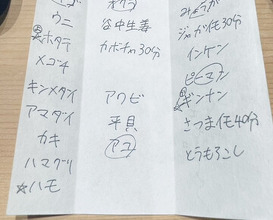 ウニ
ホタテ
メゴチ
キンメダイ
アマダイ
カキ
ハマグリ
☆ハモ
オクラ
谷中生姜
カボチャ30分
アワビ
平貝
アユ
みょうが
ジャガイモ30分
インゲン
ピーマン
ギンナン
さつまイモ40分
とうもろこし